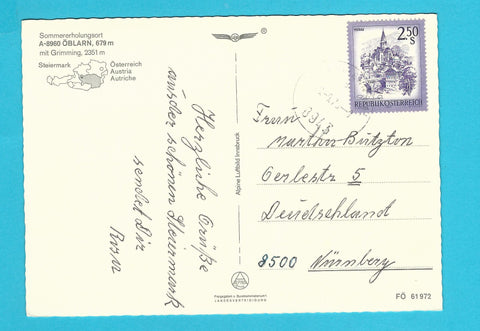 Sommererholungsort
A-8960 ÖBLARN, 679 m
mit Grimming, 2351 m
Steiermark
Österreich
Austria
Autriche
Herzliche Grüße
aus der schönen Steiermark
sendet Dir
Alpine Luftbild Innsbruck
2.50
S
REPUBLIK ÖSTERREICH
8943
Frau
Martha
Oerlestr 5
Deutschland
8500 Nürnberg
Freigegeben v. Bundesministerium f.
LANDESVERTEIDIGUNG
FÖ 61972